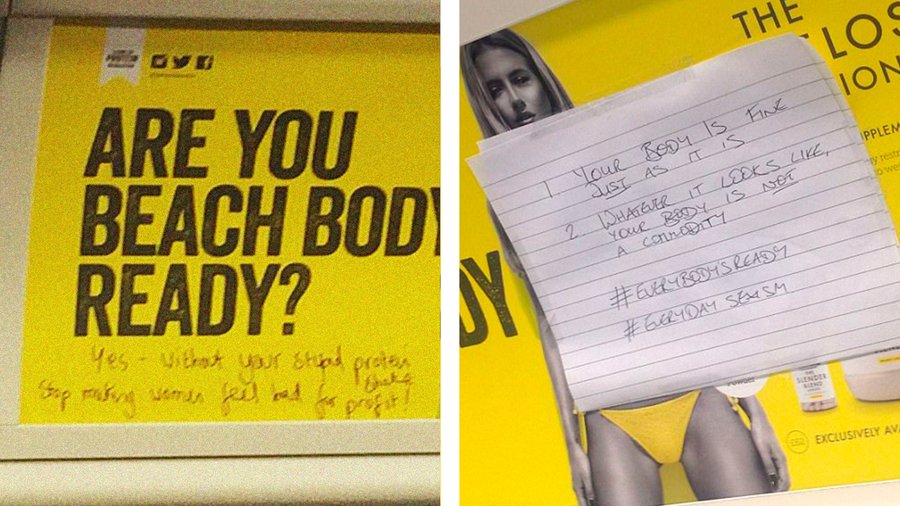 ARE YOU
BEACH BODY
READY?
Yes - without your stupid protein
shake!
Stop making women feel bad for profit!
THE
LOS
ION
PPLEM
DY
1 YOUR BODY IS FINE
JUST AS IT IS
2 WHATEVER IT LOOKS LIKE,
YOUR BODY IS NOT
A COMMODITY
#EVERYBODYSREADY
#EVERYDAYSEXISM
THE
SLENDER
BLEND
EXCLUSIVELY AV